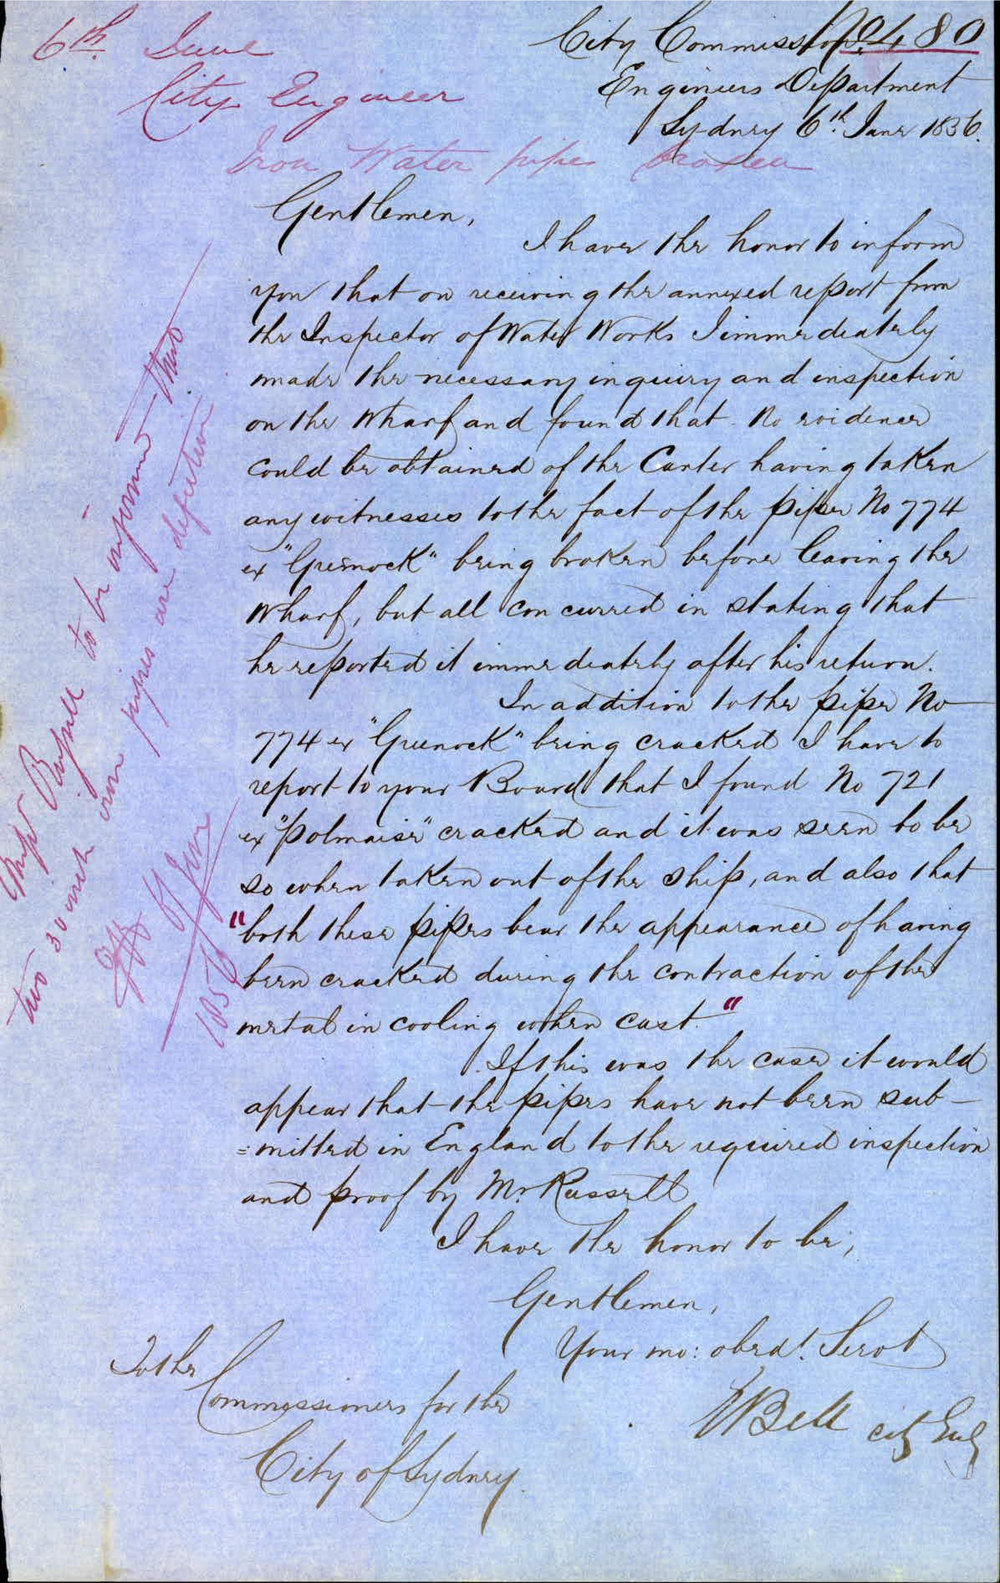 6th June
City Engineer
Iron Water pipes broken
No 480
City Commissrs
Engineers Department
Sydney 6th June 1856.
Gentlemen,
I have the honor to inform
you that on receiving the annexed report from
the Inspector of Water Works I immediately
made the necessary inquiry and inspection
on the Wharf and found that no evidence
could be obtained of the Carter having taken
any witnesses to the fact of the pipe No 774
ex "Greenock" being broken before leaving the
Wharf, but all concurred in stating that
he reported it immediately after his return.
In addition to the pipe No
774 ex "Greenock" being cracked I have to
report to your Board that I found No 721
ex "Polmaise" cracked and it was seen to be
so when taken out of the ship, and also that
"both these pipes bear the appearance of having
been cracked during the contraction of the
metal in cooling when cast."
If this was the case it would
appear that the pipes have not been sub-
=mitted in England to the required inspection
and proof by Mr Russell
I have the honor to be,
Gentlemen,
Your mo: obedt. Servt
WBell City Eng
To the
Commissioners for the
City of Sydney.
Messrs Russell to be informed that
two 30 inch iron pipes are defective.
June
1856